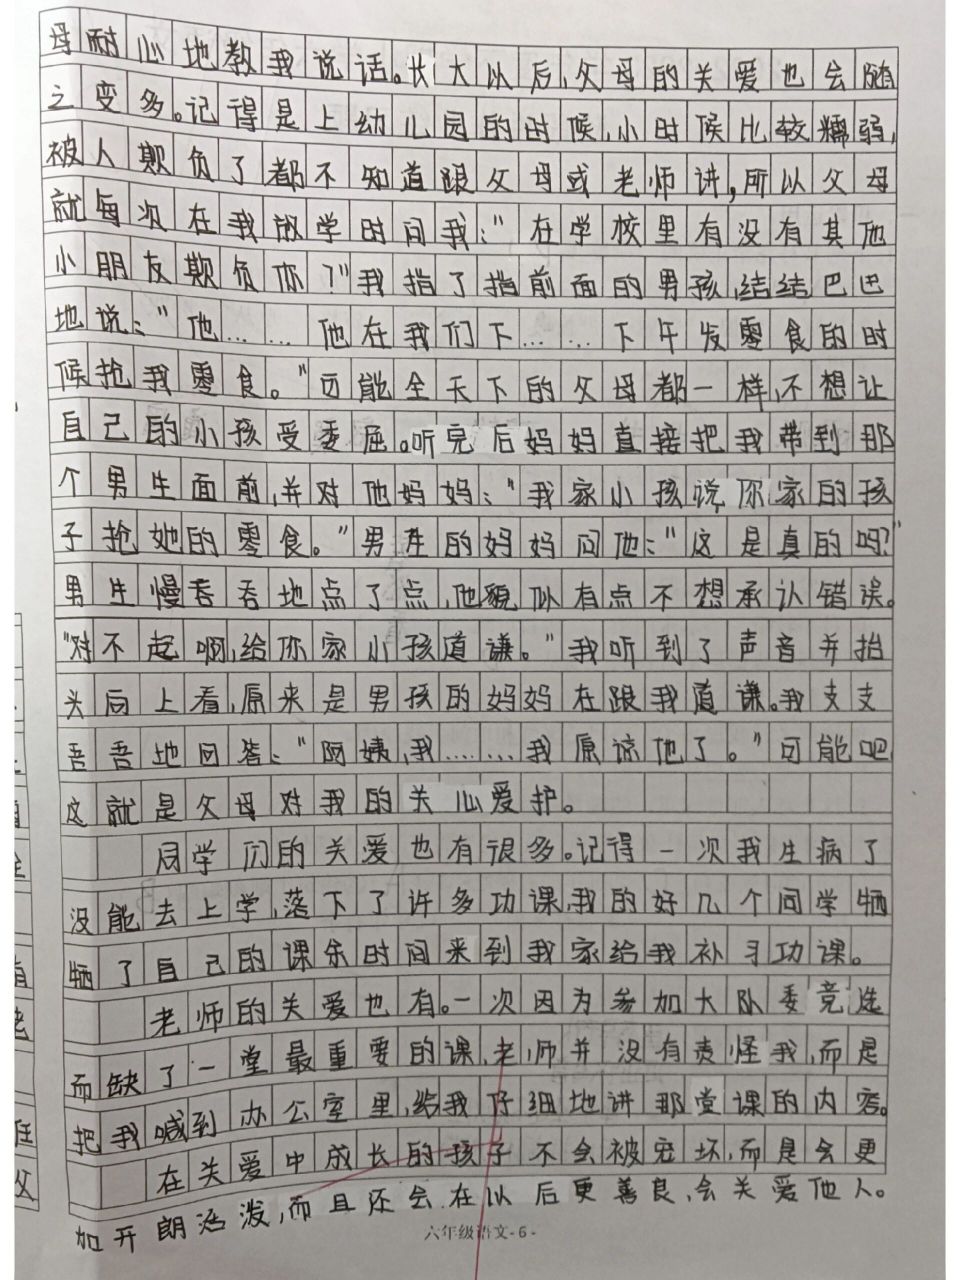 母耐心地教我说话。长大以后,父母的关爱也会随
之变多。记得是上幼儿园的时候,小时候比较糯弱,
被人欺负了都不知道跟父母或老师讲,所以父母
就每次在我放学时问我:"在学校里有没有其他
小朋友欺负你?"我指了指前面的男孩,结结巴巴
地说:"他……他在我们下……下午发零食的时
候抢我零食。"可能全天下的父母都一样,不想让
自己的小孩受委屈。听完后妈妈直接把我带到那
个男生面前,并对他妈妈:"我家小孩说,你家的孩
子抢她的零食。"男生的妈妈问他:"这是真的吗?"
男生慢吞吞地点了点,他貌似有点不想承认错误。
"对不起啊,给你家小孩道谦。"我听到了声音并抬
头向上看,原来是男孩的妈妈在跟我道谦。我支支
吾吾地回答:"阿姨,我……我原谅他了。"可能吧
这就是父母对我的关心爱护。
同学们的关爱也有很多。记得一次我生病了
没能去上学,落下了许多功课,我的好几个同学牺
牺了自己的课余时间来到我家给我补习功课。
老师的关爱也有。一次因为参加大队委竞选
而缺了一堂最重要的课,老师并没有责怪我,而是
把我喊到办公室里,给我仔细地讲那堂课的内容。
在关爱中成长的孩子不会被宠坏,而是会更
加开朗活泼,而且还会在以后更善良,会关爱他人。
六年级语文-6-